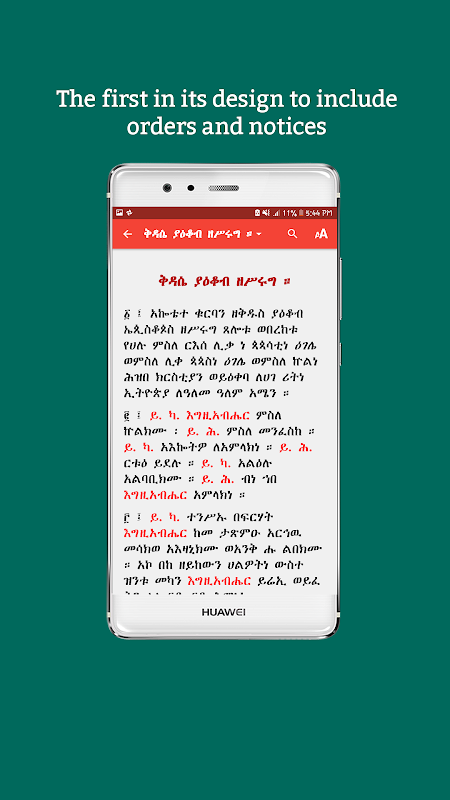 The first in its design to include
orders and notices
11% 5:44 PM
ቅዳሴ ያዕቆብ ዘሥሩግ ።
AA
ቅዳሴ ያዕቆብ ዘሥሩግ ።
፩ ፤ አኰቴተ ቁርባን ዘቅዱስ ያዕቆብ
ኤጲስቆጶስ ዘሥሩግ ጸሎቱ ወበረከቱ
የሀሉ ምስለ ርእሰ ሊቃ ነ ጳጳሳቲነ ዕገሌ
ወምስለ ሊቀ ጳጳስነ ዕገሌ ወምስለ ኵልነ
ሕዝበ ክርስቲያን ወይዕቀባ ለሀገ ሪትነ
ኢትዮጵያ ለዓለመ ዓለም አሜን ።
፪ ፤ ይ. ካ. እግዚአብሔር ምስለ
ኵልክሙ ፡ ይ. ሕ. ምስለ መንፈስከ ።
ይ. ካ. አእኩትዎ ለአምላክነ ። ይ. ሕ.
ርቱዕ ይደሉ ። ይ. ካ. አልዕሉ
አልባቢክሙ ። ይ. ሕ. ብነ ኀበ
እግዚአብሔር አምላክነ ።
፫ ፤ ይ. ካ. ተንሥኡ በፍርሃት
እግዚአብሔር ከመ ታጽምዑ አርኀዉ
መሳክወ አእዛኒክሙ ወአንቅ ሑ ልበክሙ
። አኮ በከ ዘይከውን ሀልዎትነ ውስተ
ዝንቱ መካን እግዚአብሔር ይሬኢ ወይፈ
HUAWEI